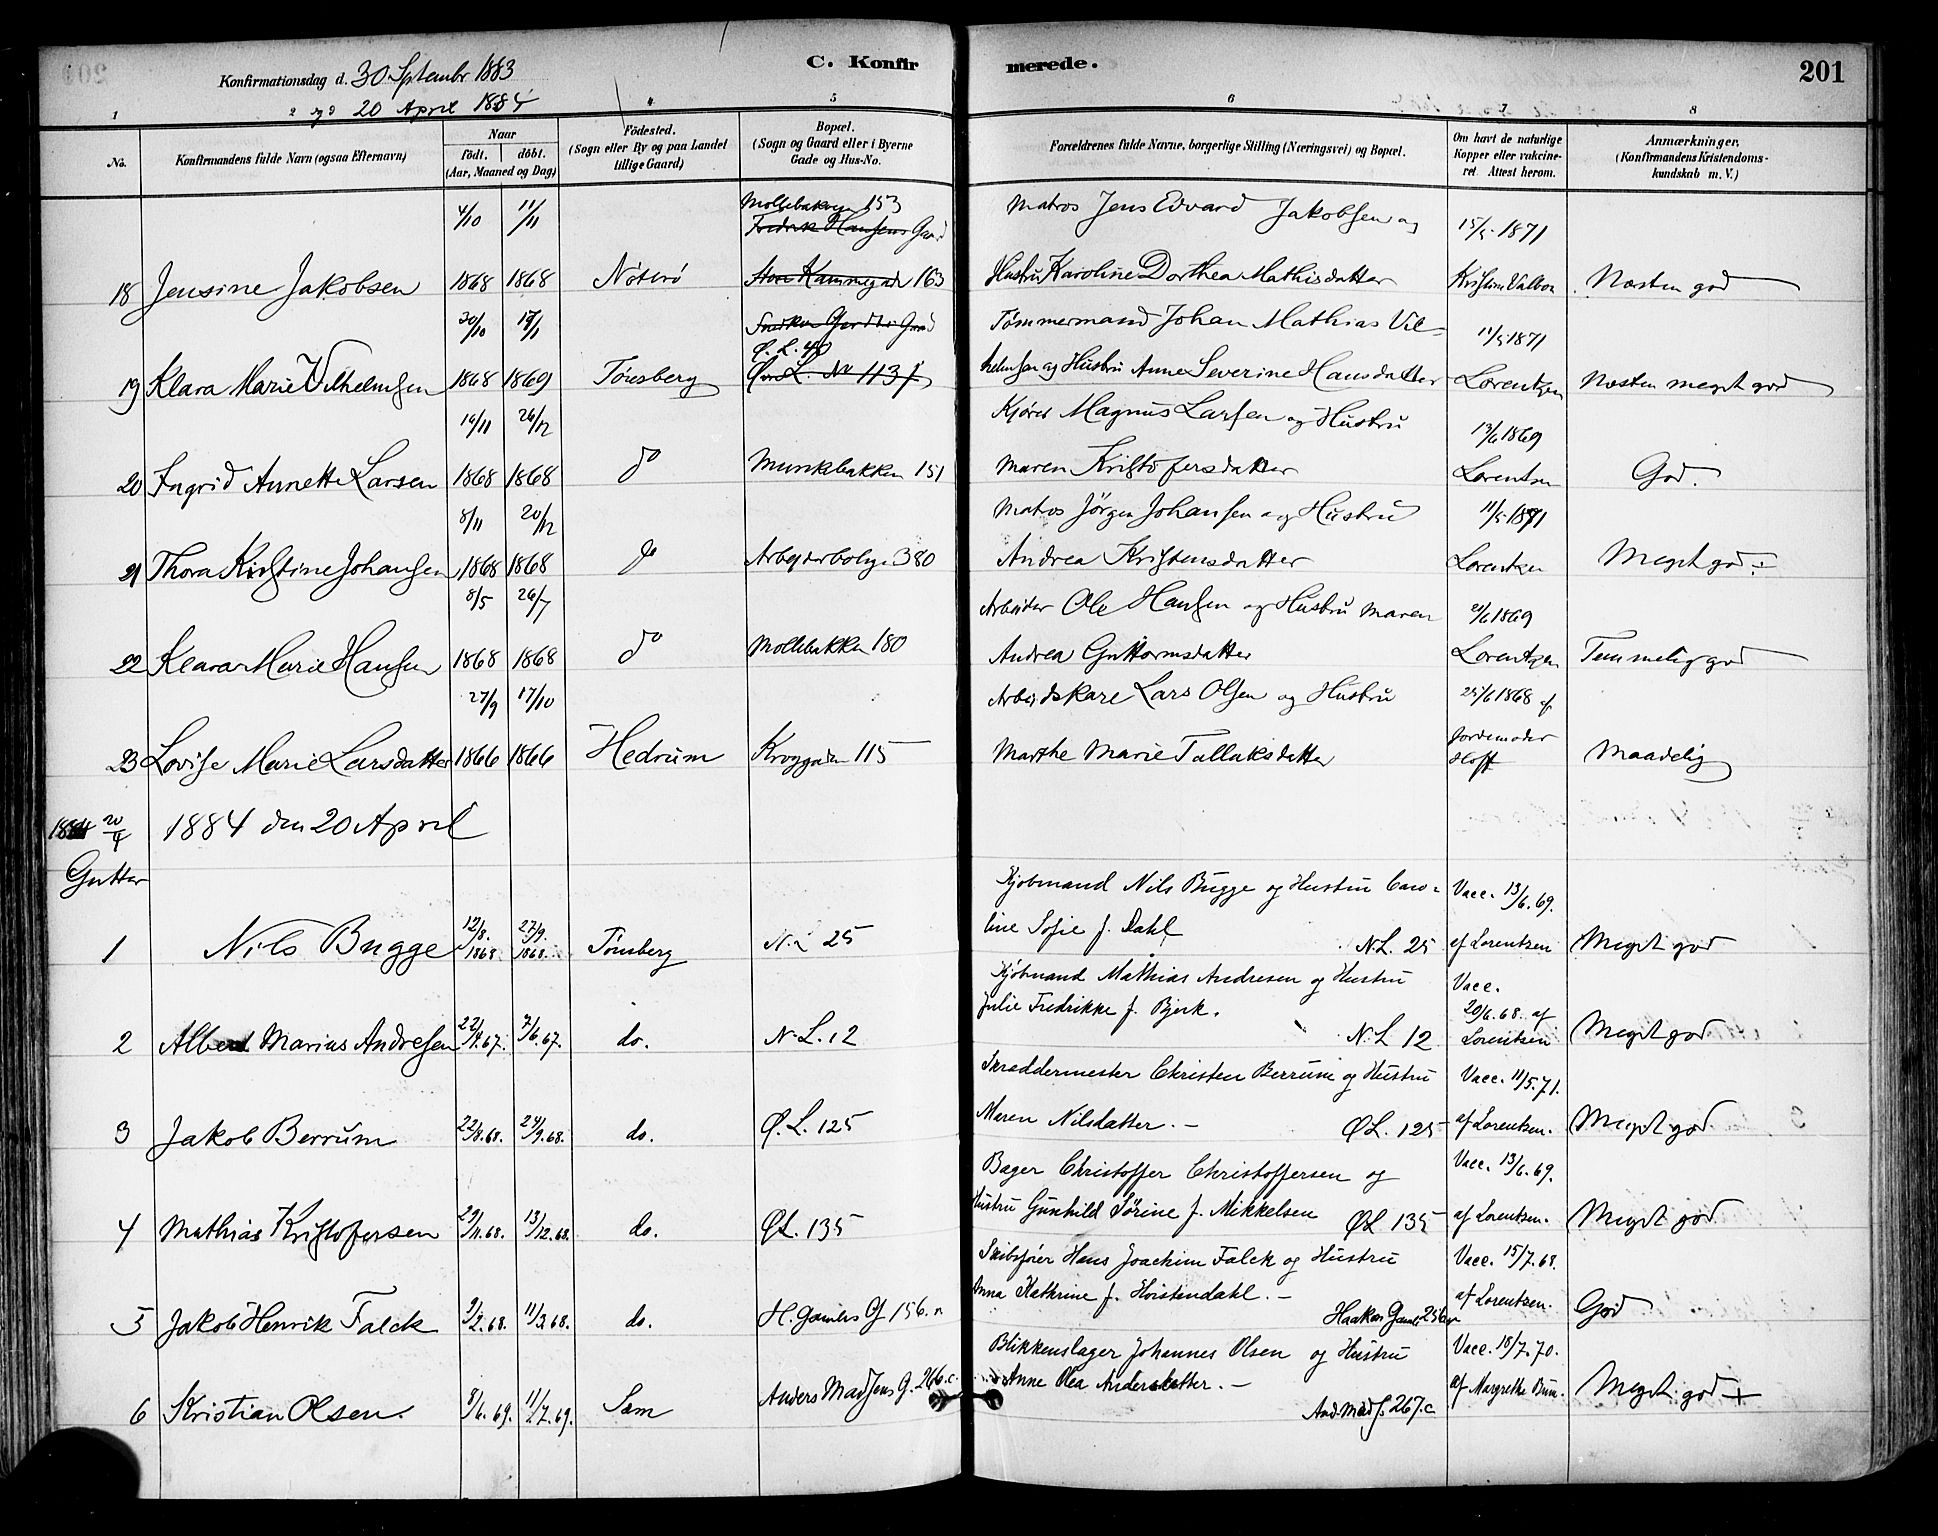 C. Konfirmerede.
201
Konfirmationsdag d. 30 Septembr 1883
20 April 1884
1 4 5 6 7 8
No.
Konfirmandens fulde Navn (ogsaa Efternavn)
Naar
födt. döbt.
(Aar, Maaned og Dag)
Födested.
(Sogn eller By og paa Landet
tillige Gaard)
Bopæl.
(Sogn og Gaard eller i Byerne
Gade og Hus-No.
Forældrenes fulde Navne, borgerlige Stilling (Næringsvei) og Bopæl.
Om havt de naturlige
Kopper eller vakcine-
ret. Attest herom.
Anmærkninger.
(Konfirmandens Kristendoms-
kundskab m. V.)
4/10 11/11 153 Matros Jens Edvard Jakobsen og 15/5 1871
Fredrik Hansens Gaard
18 Jensine Jakobsen 1868 1868 Nöterö 163 Hustru Karoline Dorthea Mathisdatter Næsten god
30/10 Tømmermand Johan Mathias Vil- 11/5 1871
Ø. L. 40
19 Klara Marie Vilhelmsen 1868 1869 Tönsberg No 113 f helmsen og Hustru Anne Severine Hansdatter Lorentzen Næsten meget god
26/12 Kjörer Magnus Larsen og Hustru 13/6 1869
20 Ingrid Annette Larsen 1868 1868 do Munkebakken 151 Maren Kristofersdatter Lorentzen God.
8/11 20/12 Matros Jörgen Johansen og Hustru 11/5 1871
21 Thora Kristine Johansen 1868 1868 do Arbejderbolig 380 Andrea Kristensdatter Lorentzen Meget god ÷
8/5 26/7 Arbeider Ole Hansen og Hustru Maren 1869
22 Klara Marie Hansen 1868 1868 do Mollebakken 180 Andrea Guttormsdatter Lorentzen Temmelig god
27/9 17/10 Arbejdskare Lars Olsen og Hustru 25/6 1868 af
23 Lovise Marie Larsdatter 1866 1866 Hedrum Kroggaden 115 Marthe Marie Tallaksdatter Jordemoder
Hoff Maadelig
1884 20/4 1884 den 20 April
Gutter
Kjøbmand Nils Bugge og Hustru Caro- Vacc. 13/6. 69.
1 Nils Bugge 12/8. 1868. 27/9. 1868. Tönsberg N. L 25 line Sofie f. Dahl N. L. 25 af Lorentzen Meget god
Kjøbmand Mathias Andresen og Hustru Vacc.
Julie Fredrikke f. Bjerk. 20/6. 68. af
2 Albert Marius Andresen 22/4. 67. 7/6. 67. do. N. L. 12 N. L 12 Lorentzen Meget god
Skræddermester Christen Berrum og Hustru Vacc. 11/5. 71.
3 Jakob Berrum 22/8. 68. 24/9. 68. do. Ø. L. 125 Maren Nilsdatter. - ØL. 125 af Lorentzen. Meget god.
Bager Christoffer Christoffersen og Vacc. 13/6. 69.
4 Mathias Kristofersen 29/11. 68. 13/12. 68. do. ØL. 135 Hustru Gunhild Sørine f. Mikkelsen ØL 135 af Lorentzen. Meget god
Skibsfører Hans Joachim Falck og Hustru Vacc. 15/7. 68.
Anna Kathrine f. Hoistendahl. - af Lorentzen.
5 Jakob Henrik Falck 9/2. 68. 11/3. 68. do. H. Gamles G 156. n Haakon Gamles God
Blikkenslager Johannes Olsen og Hustru Vacc. 18/7. 70.
Anders Madsens G. 266. c Anne Olea Andersdatter. - af Margrethe Bum.
6 Kristian Olsen. 8/6. 69. 11/7. 69. Sem And. Mads. 267. c Meget god +